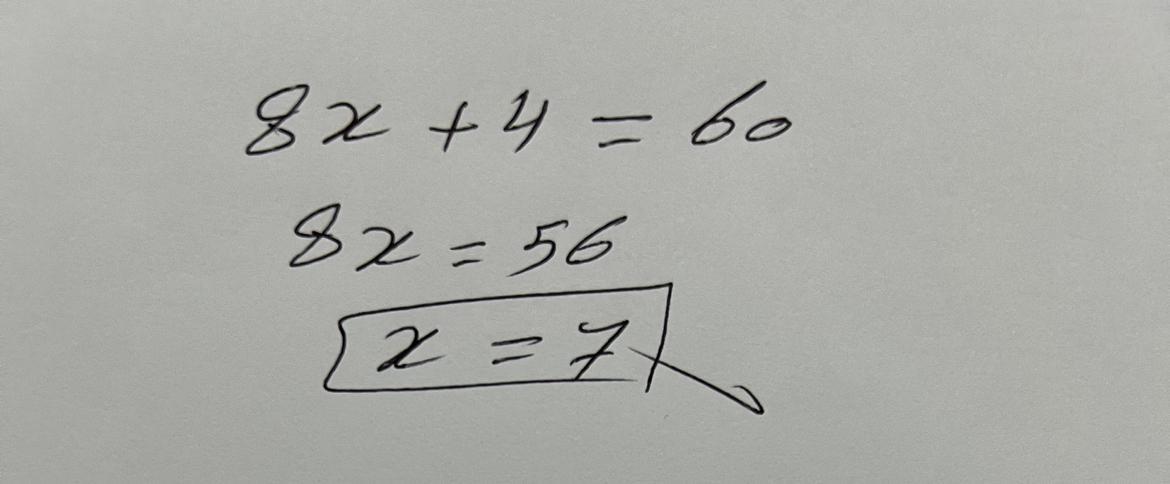 8x + 4 = 60
8x = 56
x = 7